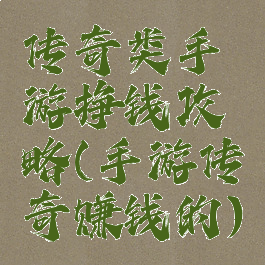 传奇类手
游挣钱攻
略(手游传
奇赚钱的)